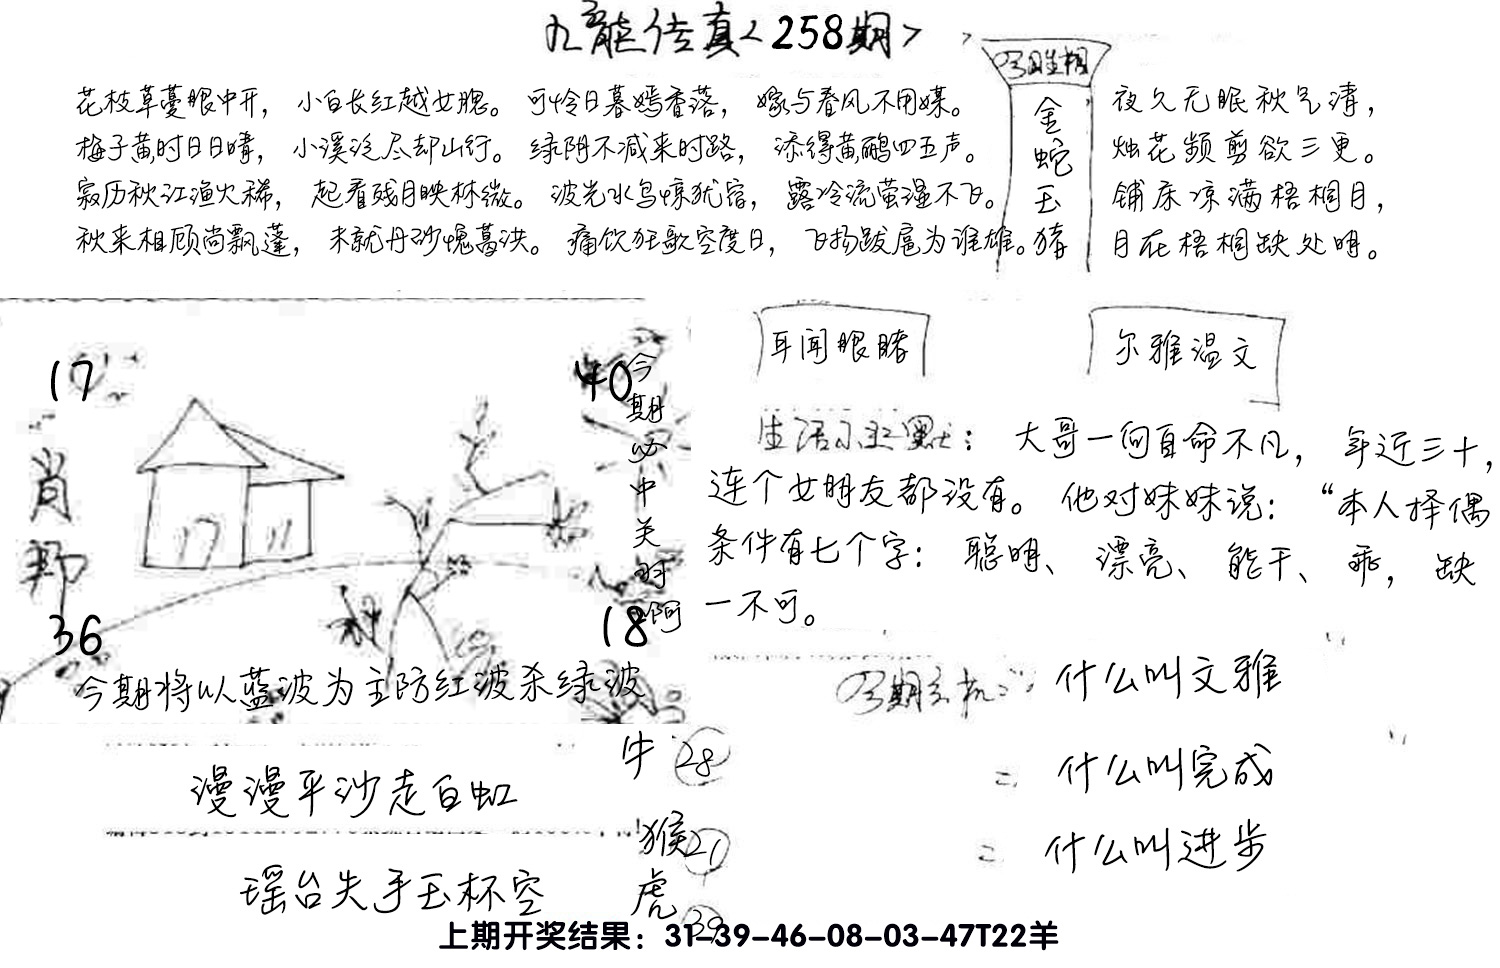 九龙传真<258期>
今日生相
花枝草蔓眼中开，小白长红越女腮。可怜日暮嫣香落，嫁与春风不用媒。
梅子黄时日日晴，小溪泛尽却山行。绿阴不减来时路，添得黄鹂四五声。
寂历秋江渔火稀，起看残月映林微。波光水鸟惊犹宿，露冷流萤湿不飞。
秋来相顾尚飘蓬，未就丹砂愧葛洪。痛饮狂歌空度日，飞扬跋扈为谁雄。
金
蛇
玉
猪
夜久无眠秋气清，
烛花频剪欲三更。
铺床凉满梧桐月，
月在梧桐缺处明。
17
40
肖
36
18
今期必中关对啊
今期将以蓝波为主防红波杀绿波
耳闻眼睹
尔雅温文
生活小幽默：大哥一向自命不凡，年近三十，
连个女朋友都没有。他对妹妹说：“本人择偶
条件有七个字：聪明、漂亮、能干、乖，缺
一不可。
今期玄机：什么叫文雅
= 什么叫完成
= 什么叫进步
漫漫平沙走白虹
瑶台失手玉杯空
牛 28
猴 21
虎 39
上期开奖结果：31-39-46-08-03-47T22羊